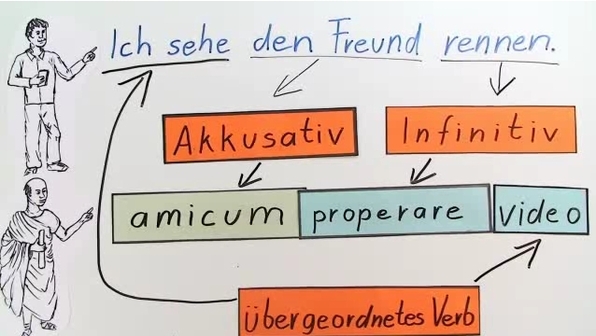 Ich sehe den Freund rennen.
Akkusativ Infinitiv
amicum properare video
übergeordnetes Verb